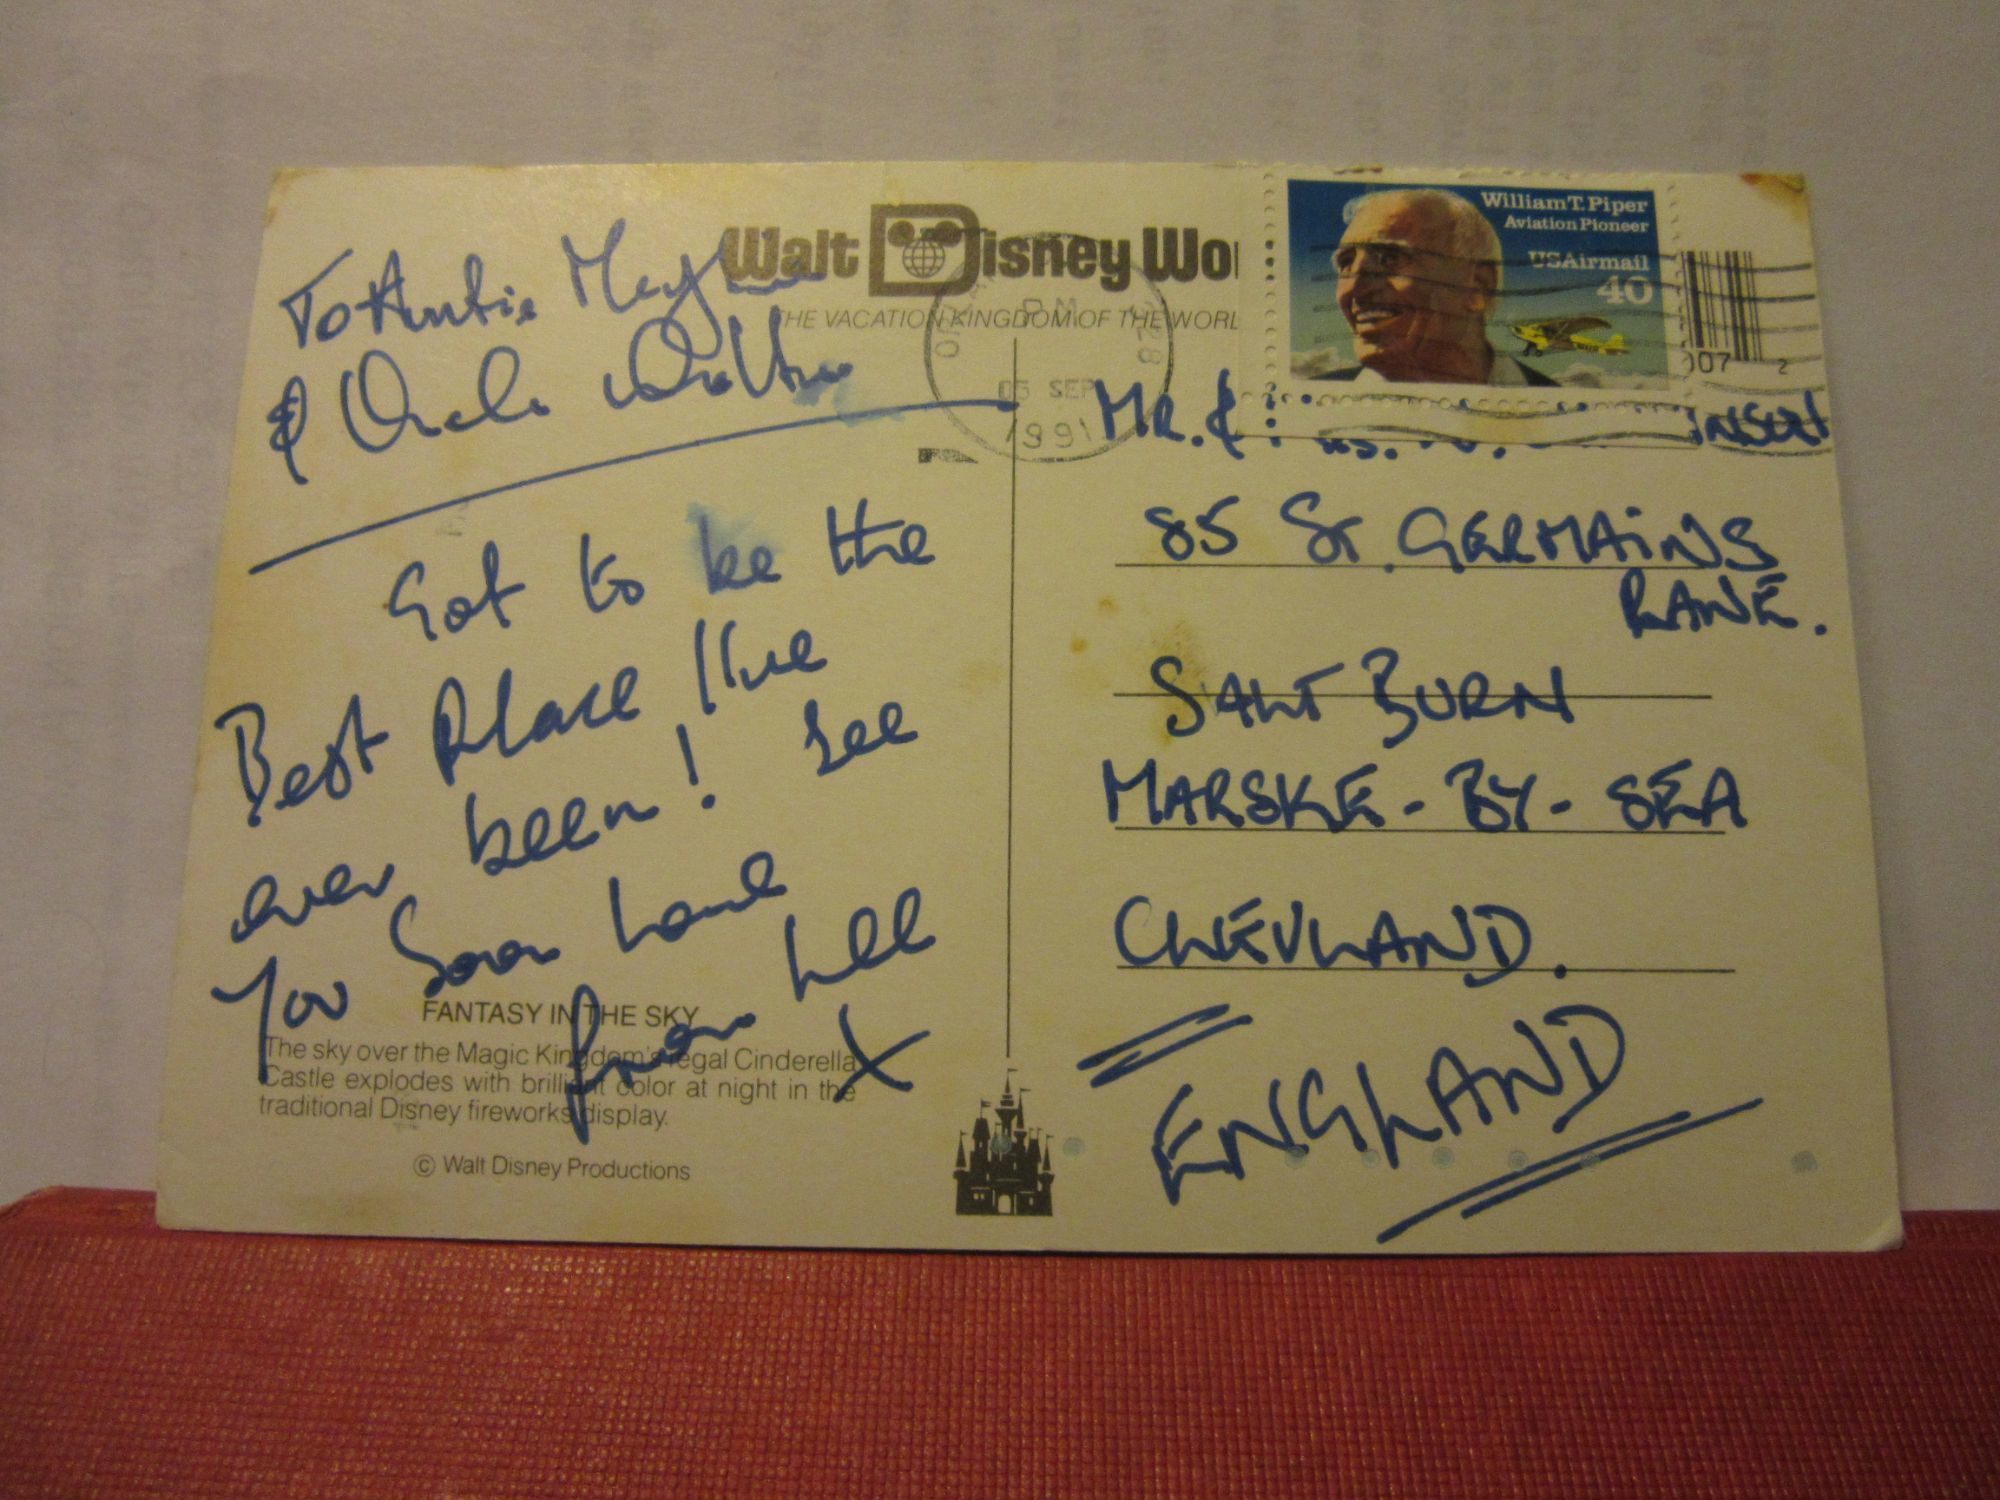 Walt Disney Wo
THE VACATION KINGDOM OF THE WORL
William T. Piper
Aviation Pioneer
USAirmail
40
007 2
PM
05 SEP
1991
328
To Auntie
& Uncle
Got to be the
Best Place I've
ever been! See
You Soon Love
from Lee
X
FANTASY IN THE SKY
The sky over the Magic Kingdom's regal Cinderella
Castle explodes with brilliant color at night in the
traditional Disney fireworks display.
© Walt Disney Productions
MR. &
85 ST. GERMAINS
LANE.
SALTBURN
MARSKE-BY-SEA
CLEVLAND.
ENGLAND